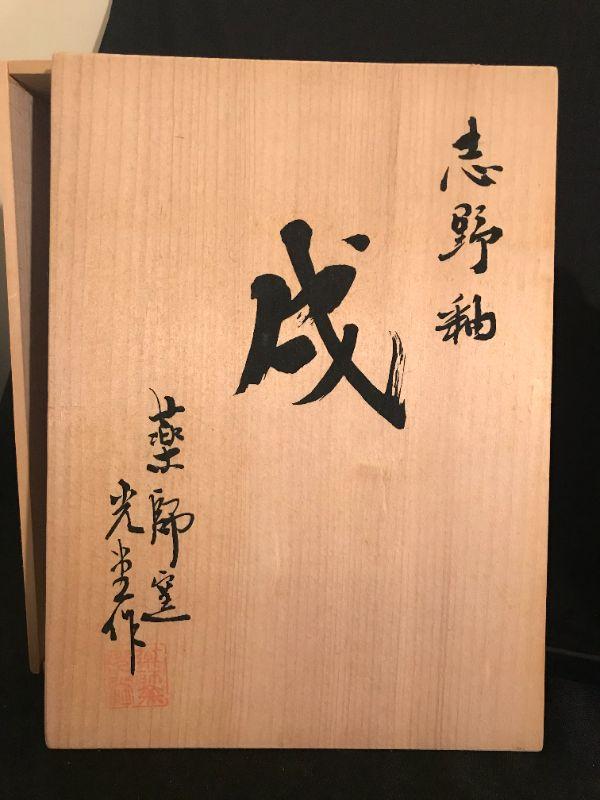 志野釉
戌
薬師窯
光堂作